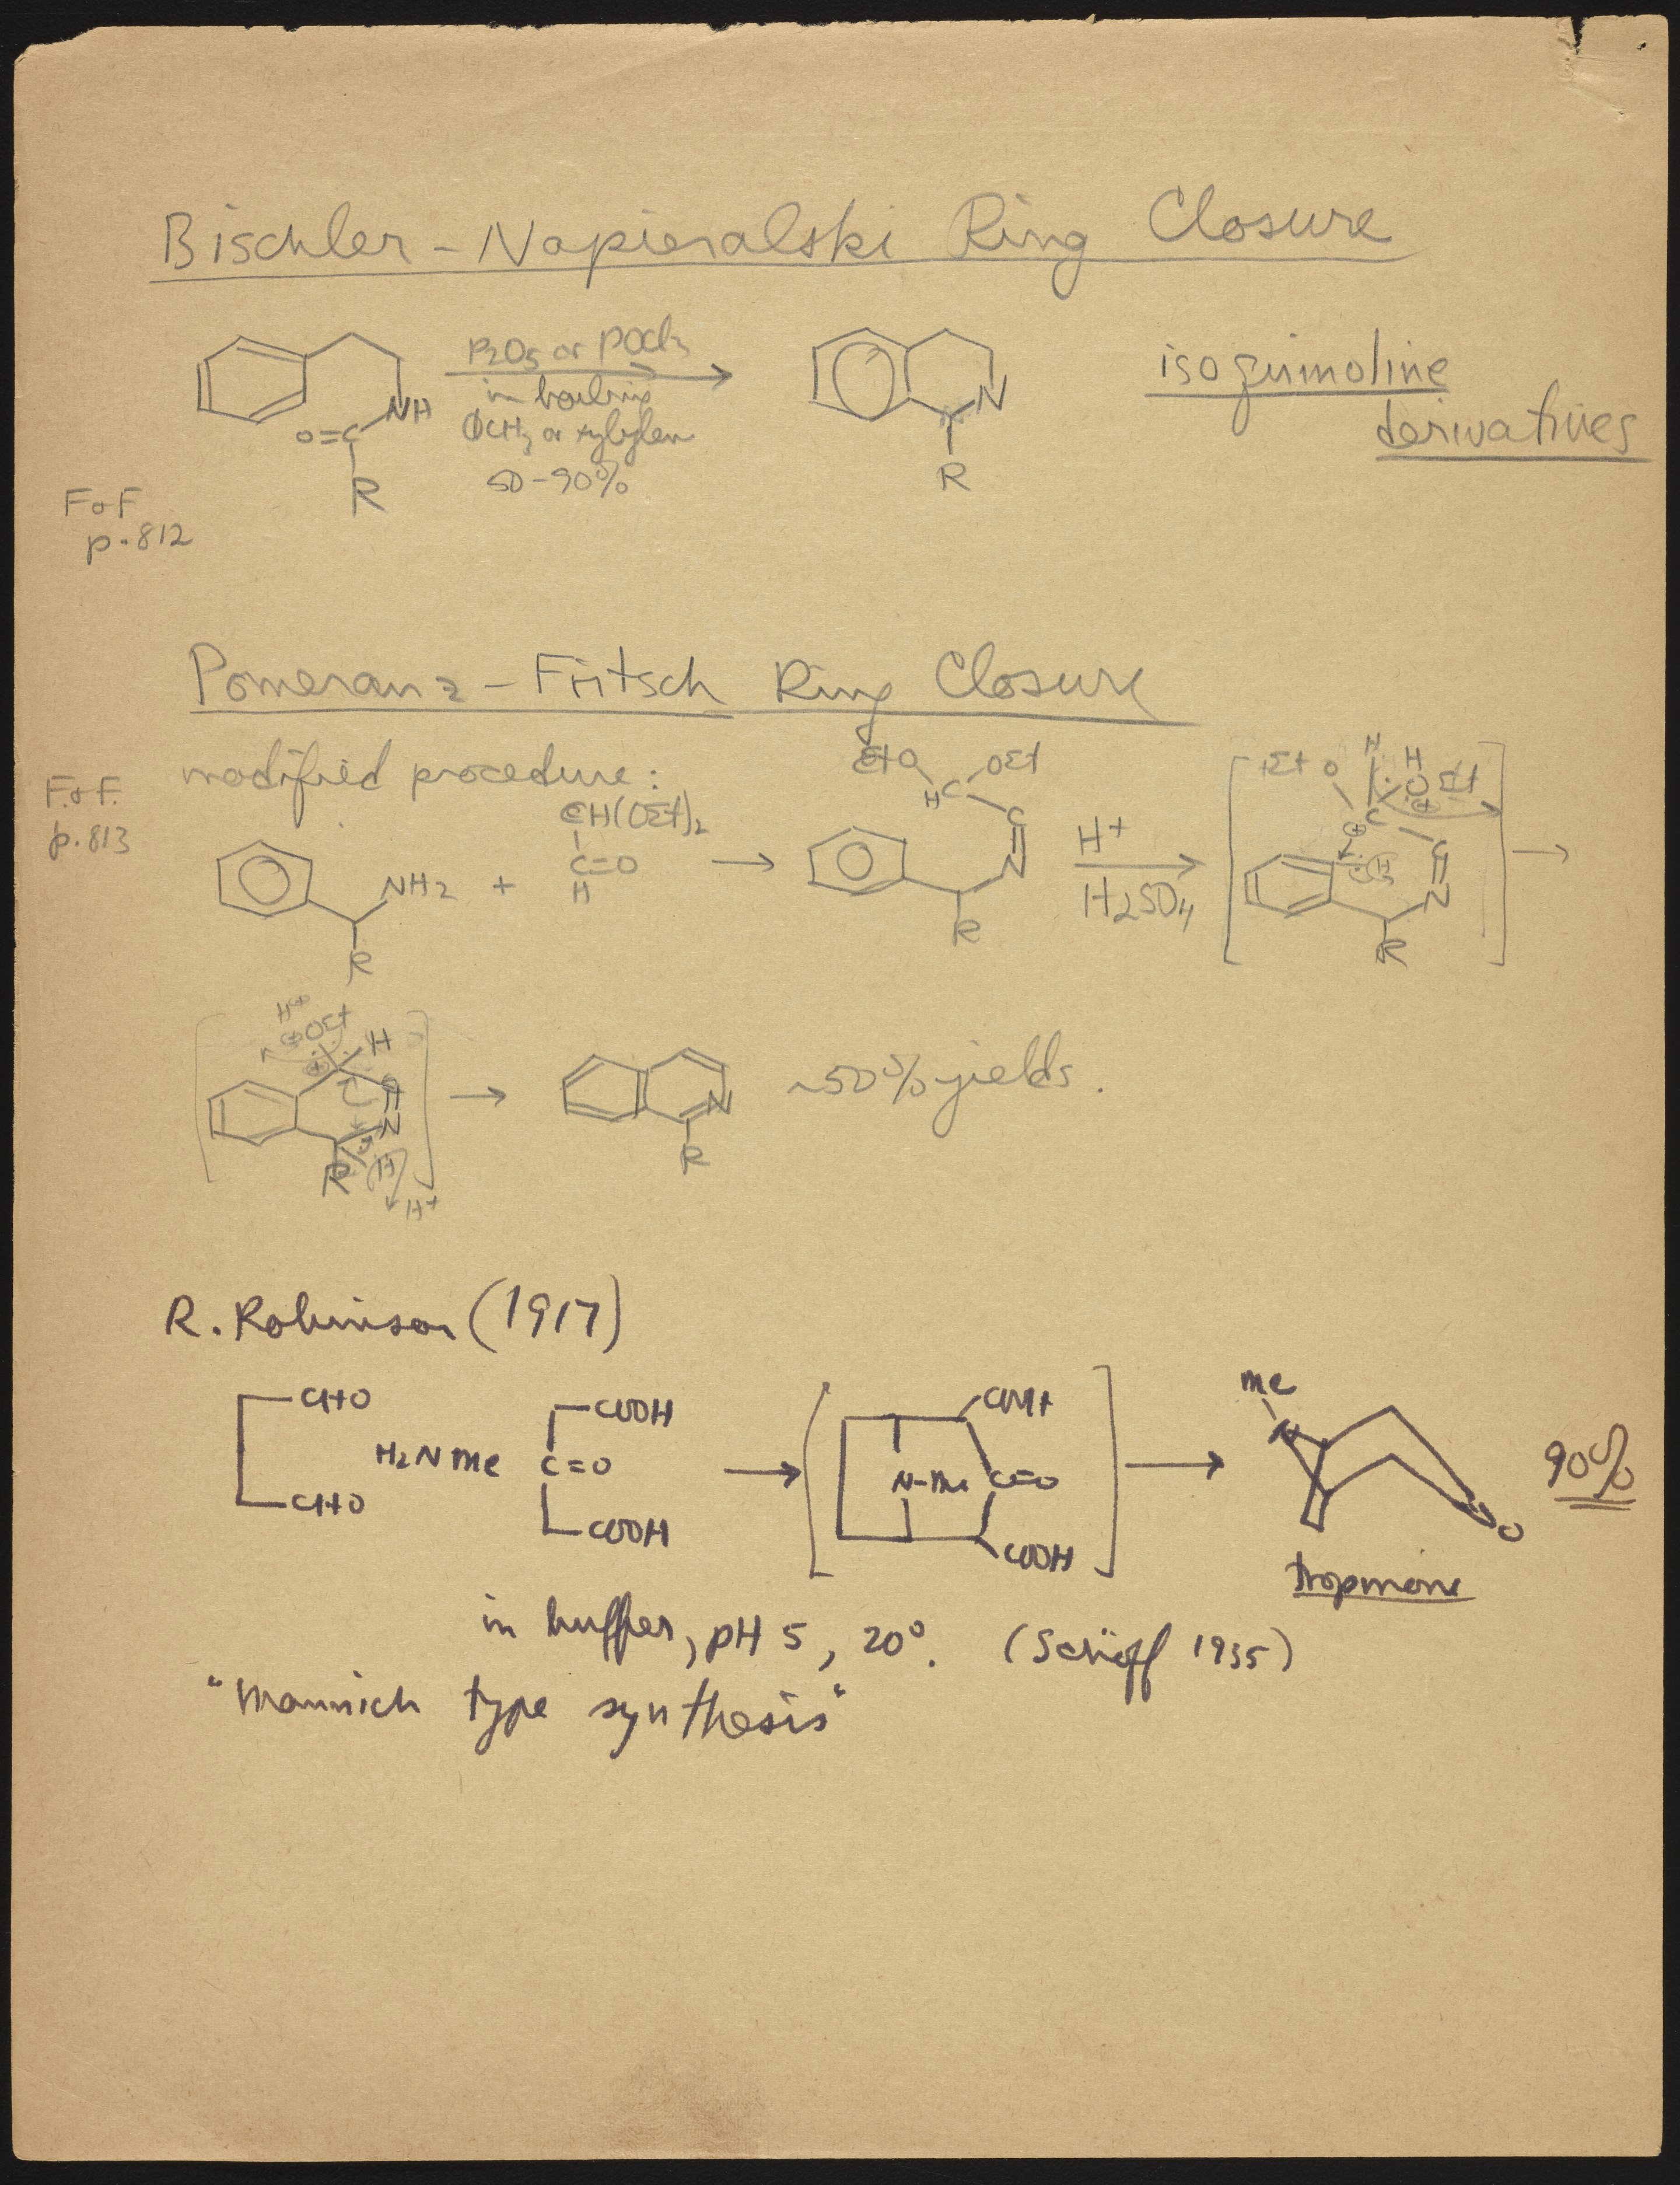 Bischler - Napieralski Ring Closure
P2O5 or POCl3
in boiling
ΦCH3 or xylylen
50-90%
NH
O=C
R
N
R
isoquinoline
derivatives
F & F
p. 812
Pomeranz - Fritsch Ring Closure
modified procedure:
F. & F.
p. 813
CH(OEt)2
C=O
H
NH2 +
R
EtO OEt
H C
C
N
R
H+
H2SO4
Et O H H
OEt
C
C
H
N
R
H+
OEt
H
N
R H
H+
N
R
~50% yields.
R. Robinson (1917)
CHO
H2NMe
CHO
COOH
C=O
COOH
N-Me C=O
COOH
Me
N
O
90%
tropinone
in buffer, pH 5, 20°. (Schöpf 1935)
"Mannich type synthesis"